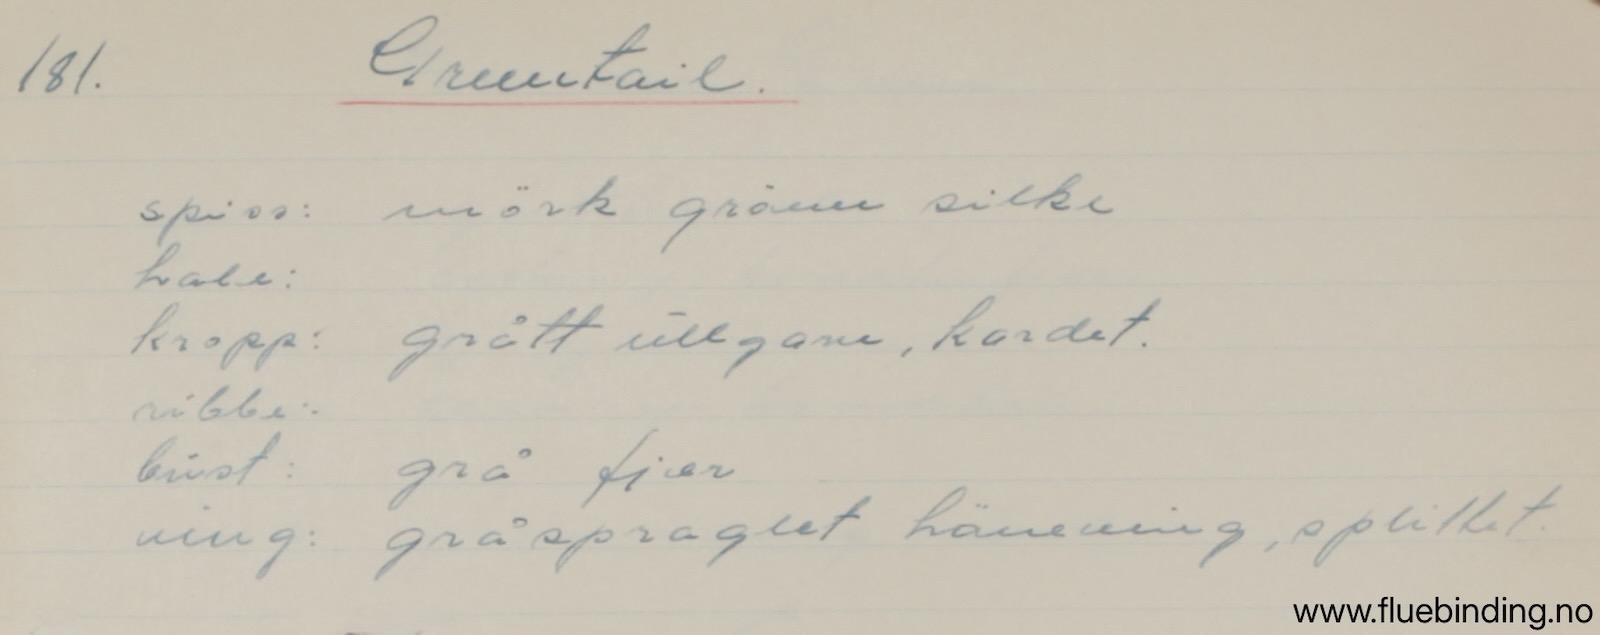 181. Greentail.
spiss: mörk grönn silke
hale:
kropp: grått ullgarn, kardet.
ribbe:
bust: grå fjær
ving: gråspraglet hönsving, splittet.
www.fluebinding.no